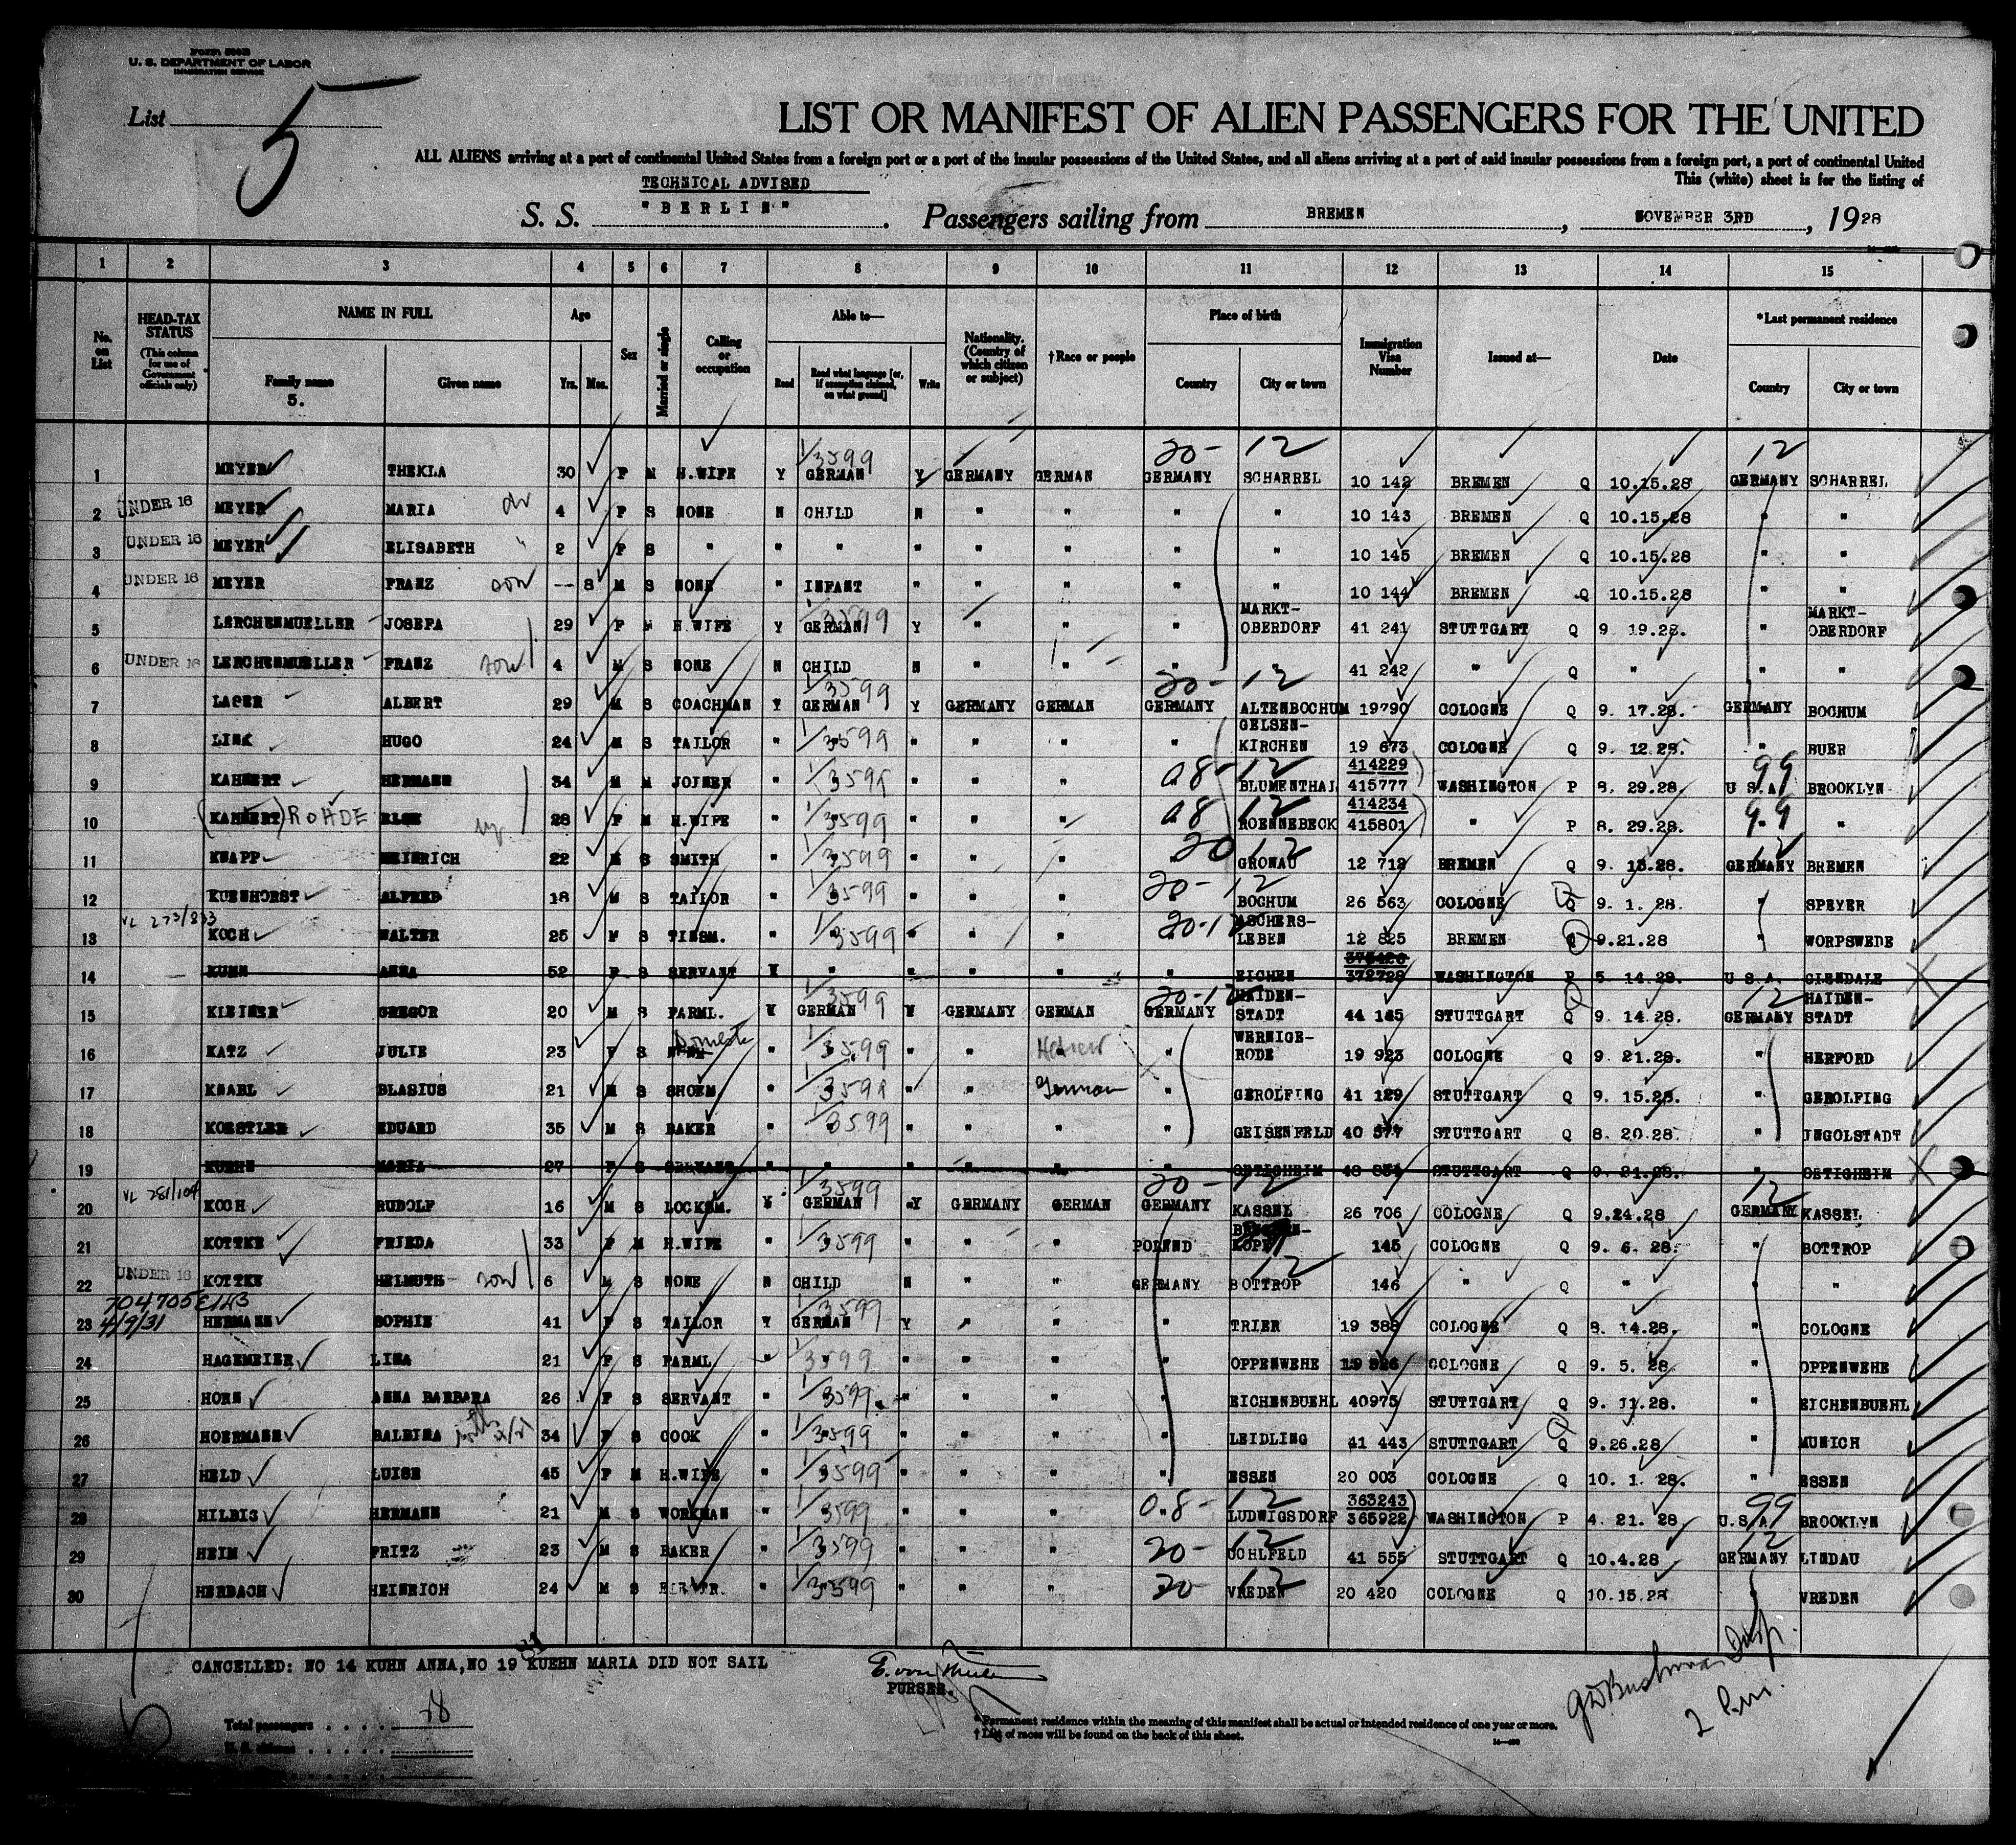 Form 500B
U. S. DEPARTMENT OF LABOR
IMMIGRATION SERVICE
List 5
LIST OR MANIFEST OF ALIEN PASSENGERS FOR THE UNITED
ALL ALIENS arriving at a port of continental United States from a foreign port or a port of the insular possessions of the United States, and all aliens arriving at a port of said insular possessions from a foreign port, a port of continental United
This (white) sheet is for the listing of
TECHNICAL ADVISED
S. S. "BERLIN". Passengers sailing from BREMEN, NOVEMBER 3RD, 1928
1 2 3 4 5 6 7 8 9 10 11 12 13 14 15
No. on List
HEAD-TAX STATUS (This column for use of Government officials only)
NAME IN FULL Family name Given name
5.
Age Yrs. Mos.
Sex
Married or single
Calling or occupation
Able to— Read Read what language [or, if exemption claimed, on what ground] Write
Nationality. (Country of which citizen or subject)
†Race or people
Place of birth Country City or town
Immigration Visa Number
Issued at—
Date
*Last permanent residence Country City or town
1 MEYER THEKLA 30 F M H.WIFE Y 1/3599 GERMAN Y GERMANY GERMAN 20- 12 GERMANY SCHARREL 10 142 BREMEN Q 10.15.28 12 GERMANY SCHARREL
2 UNDER 16 MEYER MARIA 4 F S NONE N CHILD N " " " " 10 143 BREMEN Q 10.15.28 " "
3 UNDER 16 MEYER ELISABETH " 2 F S " " " " " " " " 10 145 BREMEN Q 10.15.28 " "
4 UNDER 16 MEYER FRANZ son -- 8 M S NONE " INFANT " " " " " 10 144 BREMEN Q 10.15.28 " "
5 LERCHENMUELLER JOSEFA 29 F M H.WIFE Y 1/3599 GERMAN Y " " " MARKT-OBERDORF 41 241 STUTTGART Q 9 19.28. " MARKT-OBERDORF
6 UNDER 16 LERCHENMUELLER FRANZ son 4 M S NONE N CHILD N " " " " 41 242 " Q " " "
7 LASER ALBERT 29 M S COACHMAN Y 1/3599 GERMAN Y GERMANY GERMAN 20- 12 GERMANY ALTENBOCHUM 19790 COLOGNE Q 9. 17.28. GERMANY BOCHUM
8 LINK HUGO 24 M S TAILOR " 1/3599 " " " " GELSEN-KIRCHEN 19 673 COLOGNE Q 9. 12.28. " BUER
9 KAHNERT HERMANN 34 M M JOINER " 1/3599 " " " 08- 12 BLUMENTHAL 414229 415777 WASHINGTON P 8. 29.28. 99 U S.A. BROOKLYN
10 (KAHNERT) ROHDE ELSE 28 F M H.WIFE " 1/3599 " " " 08 12 ROENNEBECK 414234 415801 " P 8. 29.28. 99 "
11 KNAPP HEINRICH 22 M S SMITH " 1/3599 " " " 20 12 GRONAU 12 712 BREMEN Q 9. 15.28. 12 GERMANY BREMEN
12 KUENHORST ALFRED 18 M S TAILOR " 1/3599 " " " 20- 12 BOCHUM 26 563 COLOGNE Q 9. 1. 28. " SPEYER
13 VL 273/833 KOCH WALTER 25 M S TINSM. " 1/3599 " " " 20-12 ASCHERS-LEBEN 12 825 BREMEN Q 9.21.28 " WORPSWEDE
14 KUHN ANNA 52 F S SERVANT Y " " " " " EICHEN 372728 WASHINGTON P 5. 14.28. U S.A. GLENDALE
15 KLEINER GREGOR 20 M S FARML. Y 1/3599 GERMAN Y GERMANY GERMAN 20-12 GERMANY HAIDEN-STADT 44 145 STUTTGART Q 9. 14.28. 12 GERMANY HAIDEN-STADT
16 KATZ JULIE 23 F S Domestic " 1/3599 " " Hebrew " WERNIGE-RODE 19 923 COLOGNE Q 9. 21.28. " HERFORD
17 KNABL BLASIUS 21 M S SHOEM. " 1/3599 " " German " GEROLFING 41 129 STUTTGART Q 9. 15.28. " GEROLFING
18 KOESTLER EDUARD 35 M S BAKER " 1/3599 " " " " GEISENFELD 40 577 STUTTGART Q 8. 20.28. " INGOLSTADT
19 KUEHN MARIA 27 F S SERVANT " " " " " " OETIGHEIM STUTTGART Q 9. 21.28. " OETIGHEIM
20 VL 281/104 KOCH RUDOLF 16 M S LOCKSM. Y 1/3599 GERMAN Y GERMANY GERMAN 20- 12 GERMANY KASSEL 26 706 COLOGNE Q 9.24.28 12 GERMANY KASSEL
21 KOTTKE FRIEDA 33 F M H.WIFE " 1/3599 " " " POLAND 145 COLOGNE Q 9. 6. 28. " BOTTROP
22 UNDER 16 KOTTKE HELMUTH son 6 M S NONE N CHILD N " " GERMANY 12 BOTTROP 146 " Q " " "
704705
23 4/9/31 HERMANN SOPHIE 41 F S TAILOR Y 1/3599 GERMAN Y " " " TRIER 19 388 COLOGNE Q 8. 14.28. " COLOGNE
24 HAGEMEIER LINA 21 F S FARML " 1/3599 " " " " OPPENWEHE 19 826 COLOGNE Q 9. 5. 28 " OPPENWEHE
25 HORN ANNA BARBARA 26 F S SERVANT " 1/3599 " " " " EICHENBUEHL 40975 STUTTGART Q 9. 11.28. " EICHENBUEHL
26 HOERMANN BALBINA 34 F S COOK " 1/3599 " " " " LEIDLING 41 443 STUTTGART Q 9.26.28 " MUNICH
27 HELD LUISE 45 F M H.WIFE " 1/3599 " " " " ESSEN 20 003 COLOGNE Q 10. 1. 28. " ESSEN
28 HILBIG HERMANN 21 M S WORKMAN " 1/3599 " " " 08- 12 LUDWIGSDORF 363243 365922 WASHINGTON P 4. 21. 28 99 U.S.A. BROOKLYN
29 HEIM FRITZ 23 M S BAKER " 1/3599 " " " 20- 12 UCHLFELD 41 555 STUTTGART Q 10.4.28 12 GERMANY LINDAU
30 HERBACH HEINRICH 24 M S " 1/3599 " " " 20 12 VREDEN 20 420 COLOGNE Q 10.15.28 " VREDEN
CANCELLED: NO 14 KUHN ANNA, NO 19 KUEHN MARIA DID NOT SAIL
PURSER.
Total passengers . . . . 28
U. S. citizens . . . .
* Permanent residence within the meaning of this manifest shall be actual or intended residence of one year or more.
† List of races will be found on the back of this sheet.